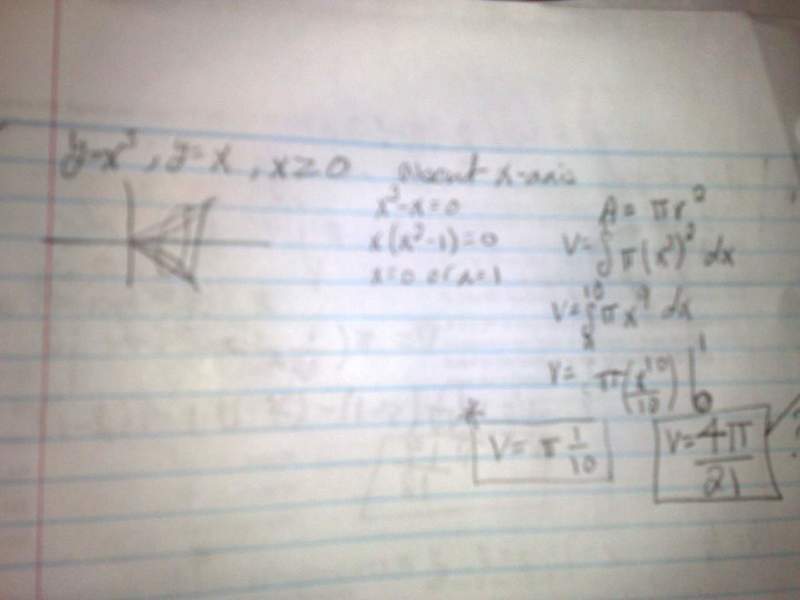 y=x³, y=x, x≥0 about x-axis
x³-x=0
x(x²-1)=0
x=0 or x=1
A= πr²
V=∫π(x³)² dx
V=∫πx⁹ dx
V= π(x¹⁰/10)|₀¹
* V= π 1/10
V= 4π/21 ?